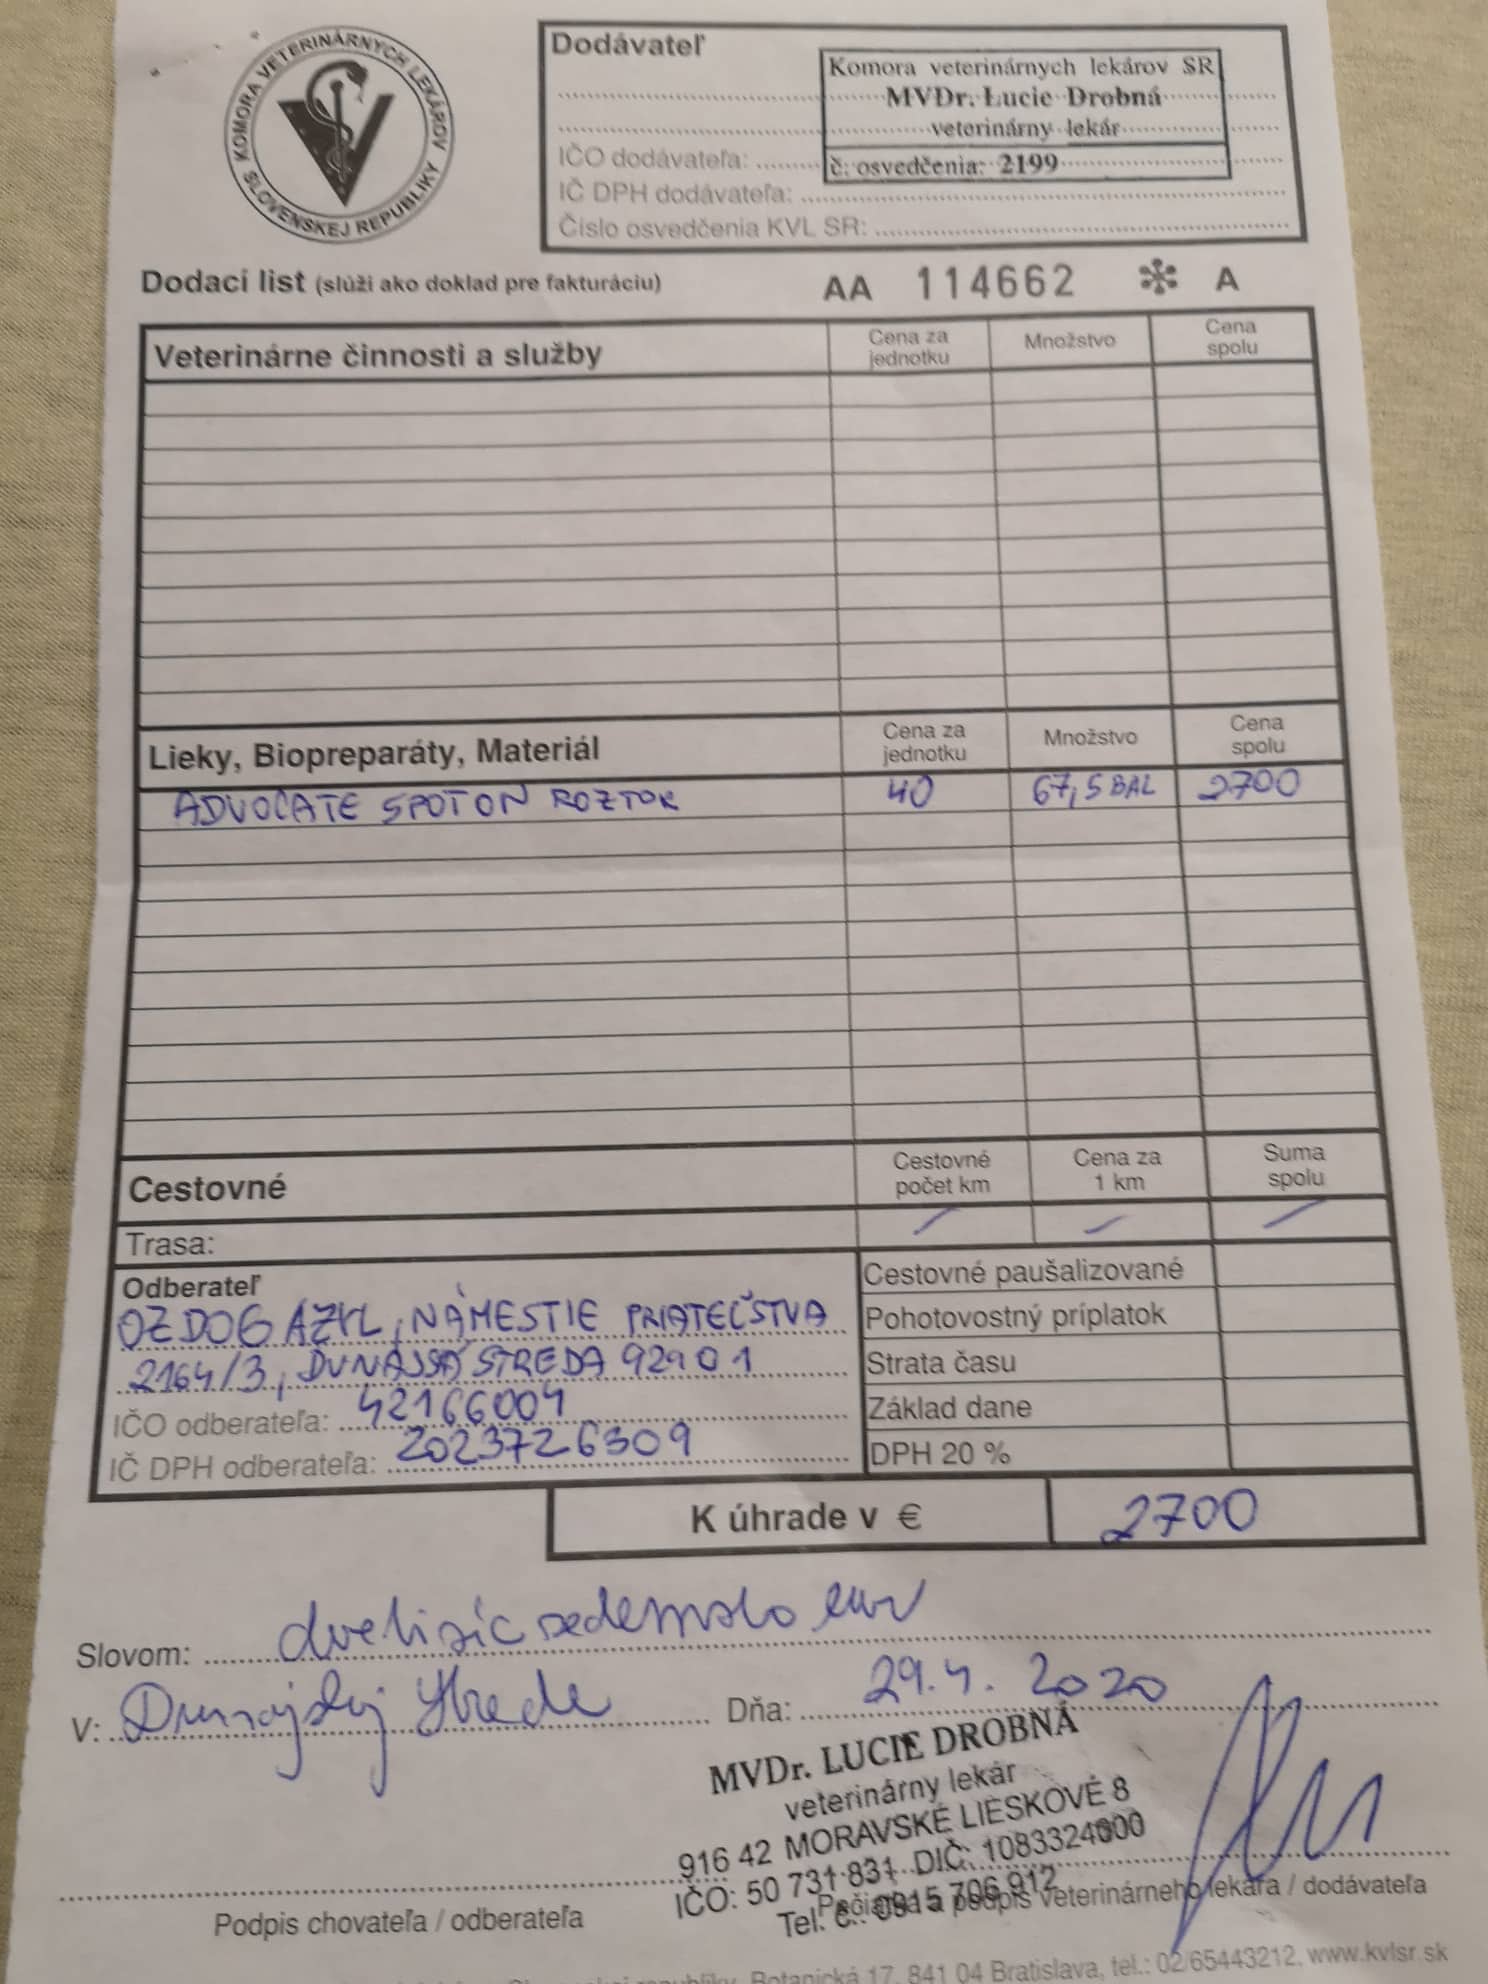 KOMORA VETERINÁRNYCH LEKÁROV SLOVENSKEJ REPUBLIKY
Dodávateľ
Komora veterinárnych lekárov SR
MVDr. Lucie Drobná
veterinárny lekár
č. osvedčenia: 2199
IČO dodávateľa:
IČ DPH dodávateľa:
Číslo osvedčenia KVL SR:
Dodací list (slúži ako doklad pre fakturáciu) AA 114662 A
Veterinárne činnosti a služby Cena za jednotku Množstvo Cena spolu
Lieky, Biopreparáty, Materiál Cena za jednotku Množstvo Cena spolu
ADVOCATE SPOT ON ROZTOK 40 67,5 BAL 2700
Cestovné Cestovné počet km Cena za 1 km Suma spolu
Trasa: / / /
Odberateľ
OZ DOG AZYL, NÁMESTIE PRIATEĽSTVA
2164/3, DUNAJSÁ STREDA 92901
IČO odberateľa: 42166004
IČ DPH odberateľa: 2023726309
Cestovné paušalizované
Pohotovostný príplatok
Strata času
Základ dane
DPH 20 %
K úhrade v € 2700
Slovom: dvetisíc sedemsto eur
V: Dunajskej Strede Dňa: 29.4. 2020
MVDr. LUCIE DROBNÁ
veterinárny lekár
916 42 MORAVSKÉ LIESKOVÉ 8
IČO: 50 731 831 DIČ: 1083324000
Tel. č.: 0915 706 912
Podpis chovateľa / odberateľa
Pečiatka a podpis veterinárneho lekára / dodávateľa
Botanická 17, 841 04 Bratislava, tel.: 02/65443212, www.kvlsr.sk